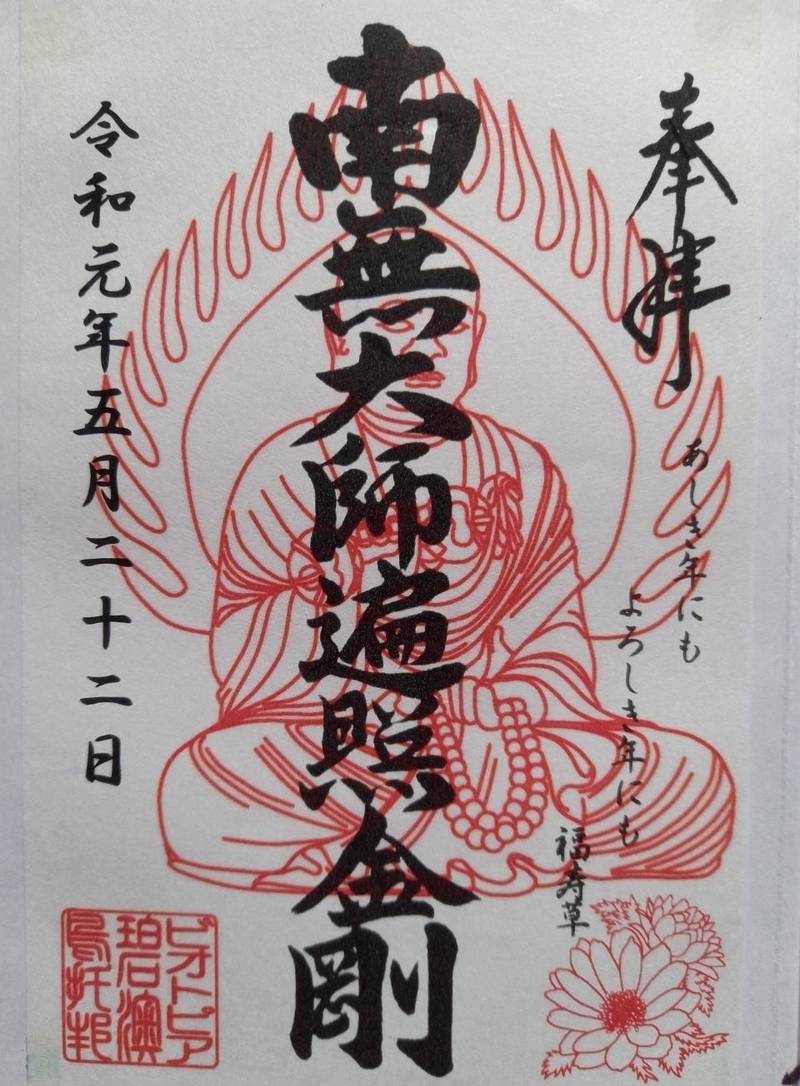 奉拝
あしき年にも
よろしき年にも
福寿草
南無大師遍照金剛
令和元年五月二十二日
ビオトピア
碧澳